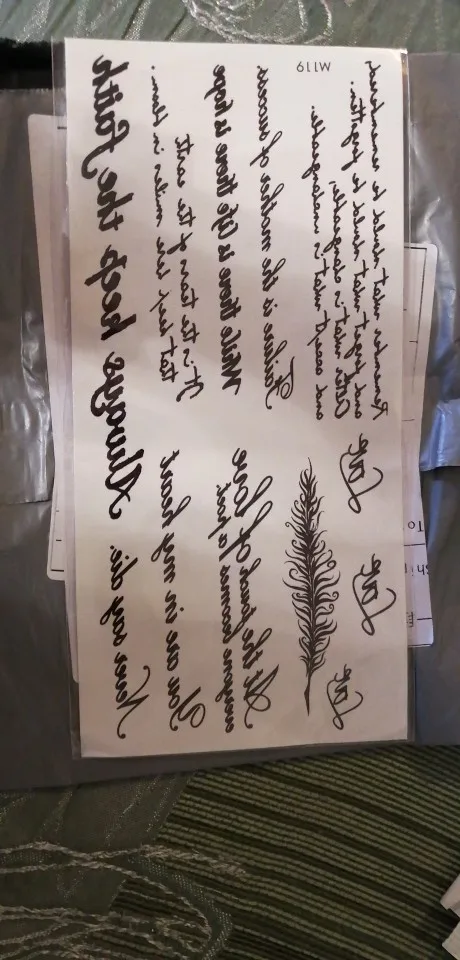 M119
Remember what should be remembered,
and forget what should be forgotten.
Alter what is changeable,
and accept what is unchangeable.
Failure is the mother of success
While there is life there is hope
It is the tears of the earth
that keep her smiles in
Always keep the Faith
Love
Love
Love
At the touch of love
everyone becomes a poet
You are in my heart
Never say die.
To